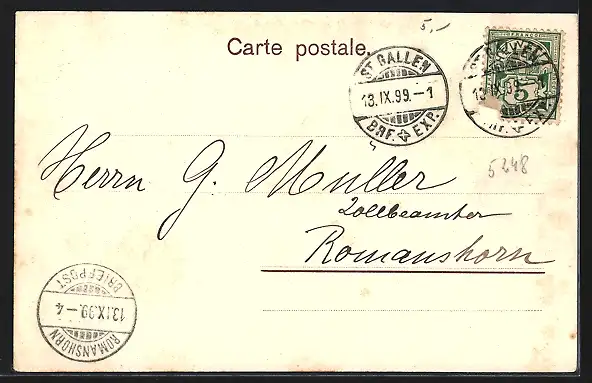 5,-
Carte postale.
ST. GALLEN
13.IX.99.-1
BRF. EXP.
FRANCO
5
13.IX.99.-1
BRF. EXP.
5248
Herrn G. Muller
Zollbeamter
Romanshorn
ROMANSHORN
13.IX.99.-4
BRIEFPOST